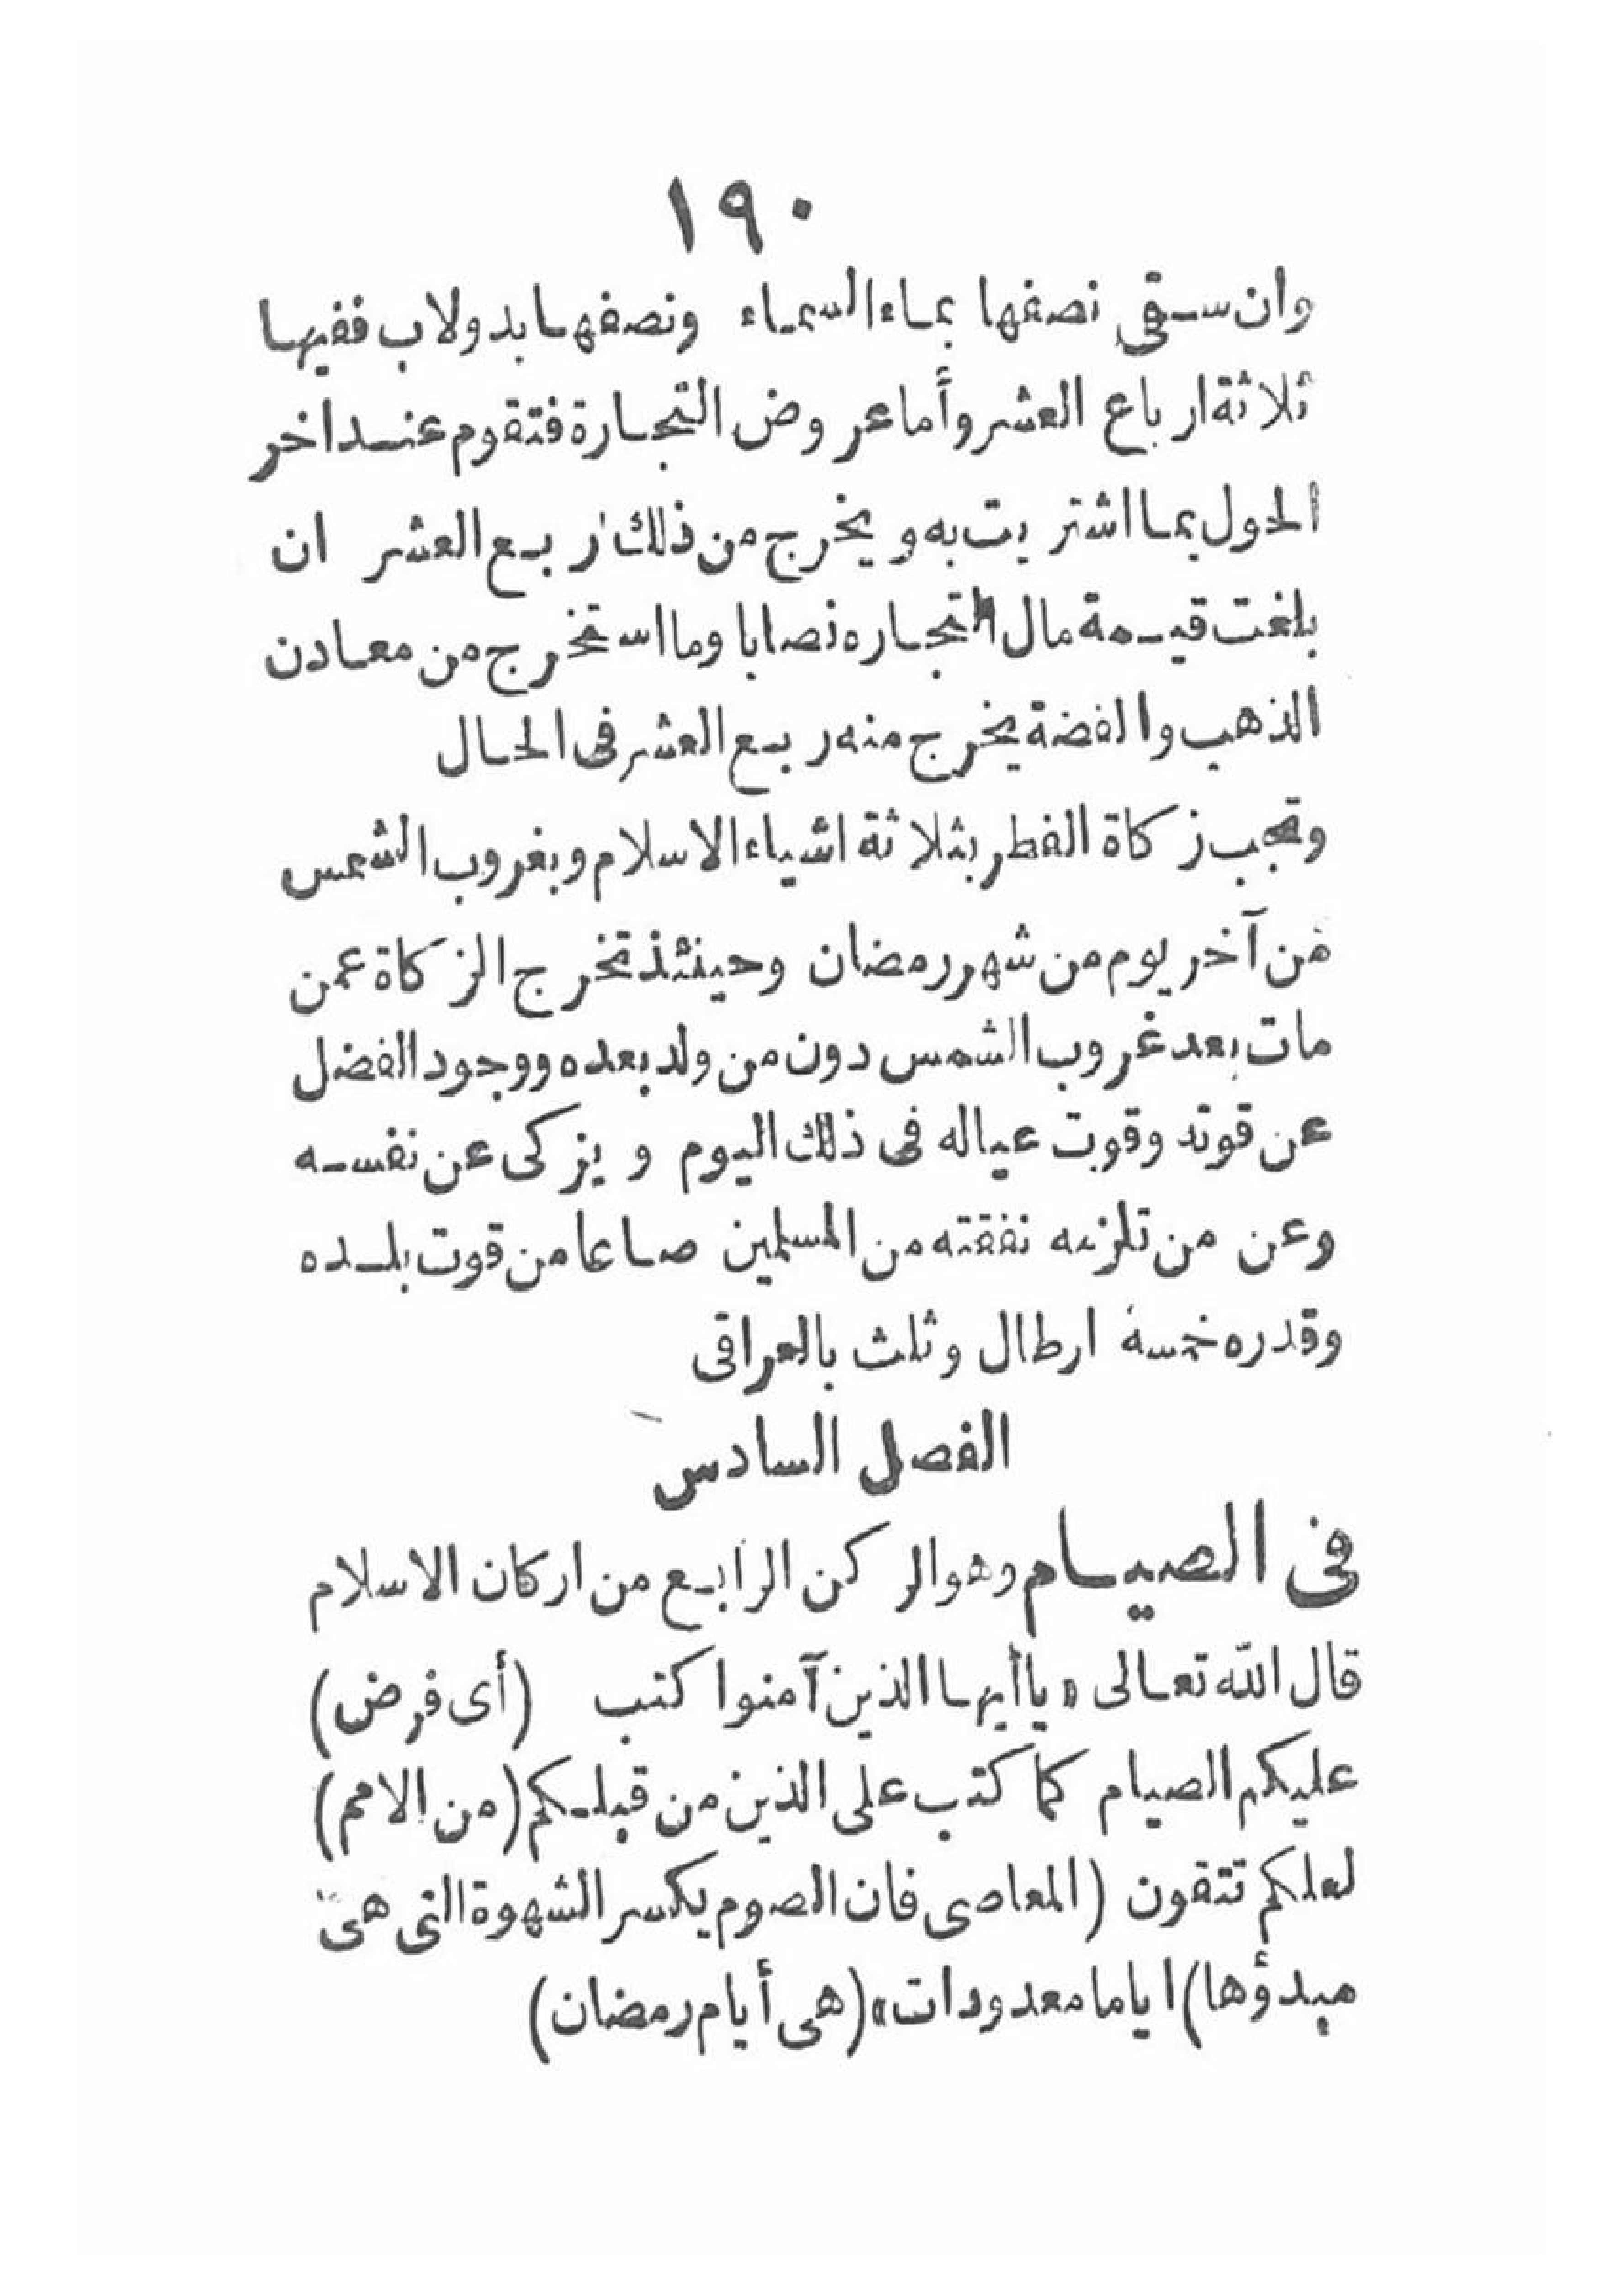 ١٩٠
وان سقى نصفها بماء السماء ونصفها بدولاب ففيها
ثلاثة ارباع العشر وأما عروض التجارة فتقوم عند اخر
الحول بما اشتريت به ويخرج من ذلك ربع العشر ان
بلغت قيمة مال التجاره نصابا وما استخرج من معادن
الذهب والفضة يخرج منه ربع العشر فى الحال
وتجب زكاة الفطر بثلاثة اشياء الاسلام وبغروب الشمس
من آخر يوم من شهر رمضان وحينئذ تخرج الزكاة عمن
مات بعد غروب الشمس دون من ولد بعده ووجود الفضل
عن قوته وقوت عياله فى ذلك اليوم ويزكى عن نفسه
وعن من تلزمه نفقته من المسلمين صاعا من قوت بلده
وقدره خمسة ارطال وثلث بالعراقى
الفصل السادس
فى الصيام وهو الركن الرابع من اركان الاسلام
قال الله تعالى «ياأيها الذين آمنوا كتب (أى فرض)
عليكم الصيام كما كتب على الذين من قبلكم (من الامم)
لعلكم تتقون (المعاصى فان الصوم يكسر الشهوة التى هى
مبدؤها) اياما معدودات» (هى أيام رمضان)